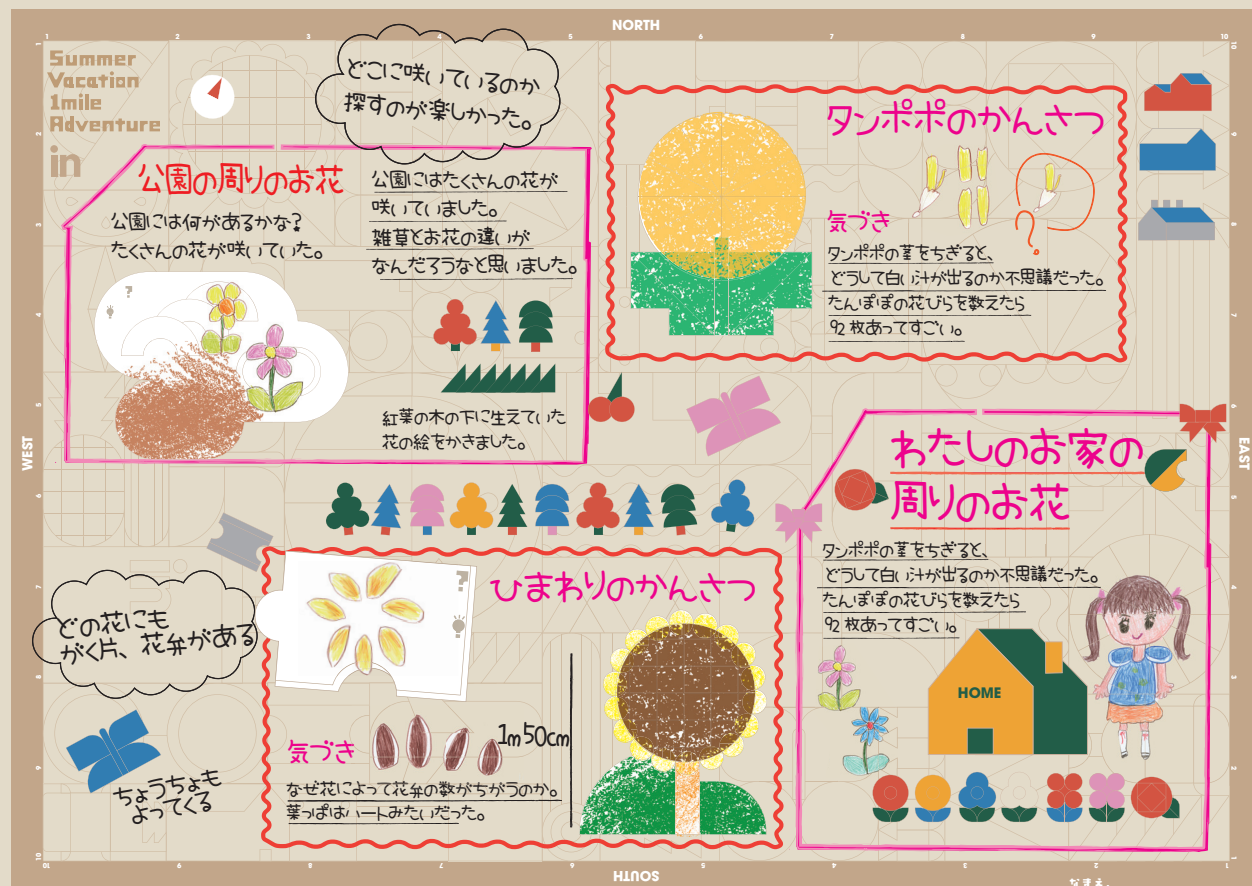 NORTH
1 2 3 4 5 6 7 8 9 10
Summer
Vacation
1mile
Adventure
in
どこに咲いているのか
探すのが楽しかった。
公園の周りのお花
公園には何があるかな？
たくさんの花が咲いていた。
公園にはたくさんの花が
咲いていました。
雑草とお花の違いが
なんだろうなと思いました。
紅葉の木の下に生えていた
花の絵をかきました。
タンポポのかんさつ
気づき
タンポポの茎をちぎると、
どうして白い汁が出るのか不思議だった。
たんぽぽの花びらを数えたら
92枚あってすごい。
WEST
EAST
わたしのお家の
周りのお花
タンポポの茎をちぎると、
どうして白い汁が出るのか不思議だった。
たんぽぽの花びらを数えたら
92枚あってすごい。
HOME
どの花にも
がく片、花弁がある
ちょうちょも
よってくる
ひまわりのかんさつ
気づき
1m50cm
なぜ花によって花弁の数がちがうのか。
葉っぱはハートみたいだった。
10 9 8 7 6 5 4 3 2 1
SOUTH
なまえ